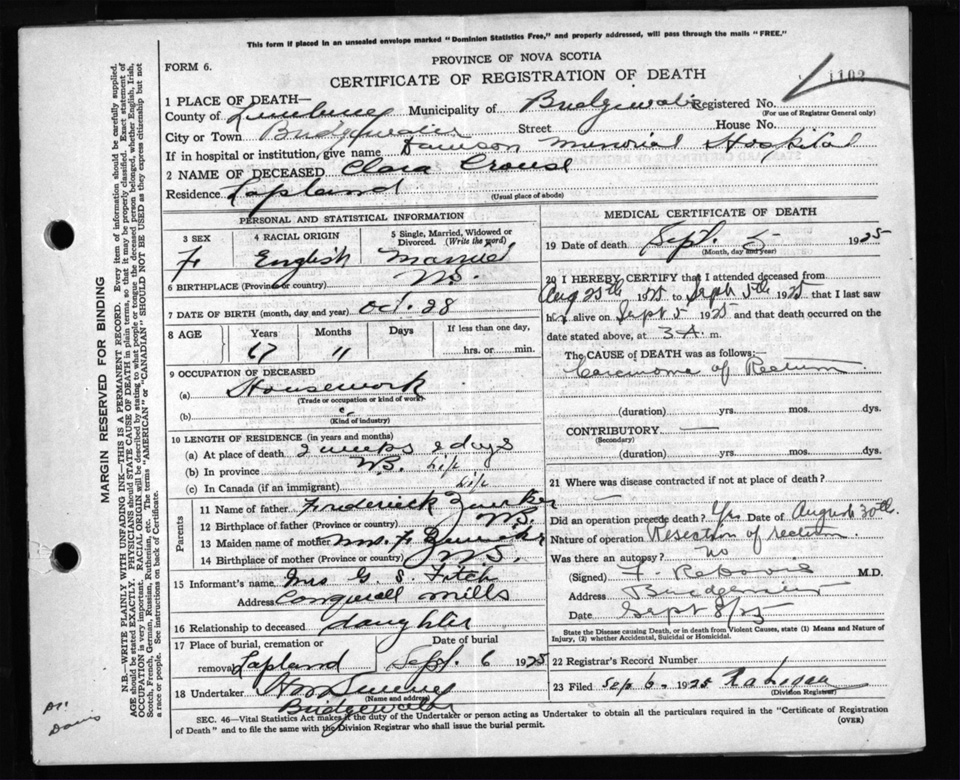 This form if placed in an unsealed envelope marked "Dominion Statistics Free," and properly addressed, will pass through the mails "FREE."
PROVINCE OF NOVA SCOTIA
FORM 6.
CERTIFICATE OF REGISTRATION OF DEATH
1102
1 PLACE OF DEATH—
County of Lunenburg Municipality of Bridgewater Registered No.
(For use of Registrar General only)
City or Town Bridgewater Street House No.
If in hospital or institution, give name Dawson Memorial Hospital
2 NAME OF DECEASED Clara Crouse
Residence Lapland
(Usual place of abode)
PERSONAL AND STATISTICAL INFORMATION
3 SEX 4 RACIAL ORIGIN 5 Single, Married, Widowed or Divorced. (Write the word)
F English Married
6 BIRTHPLACE (Province or country) N.S.
7 DATE OF BIRTH (month, day and year) Oct. 28
8 AGE Years Months Days If less than one day
67 11 hrs. or min.
9 OCCUPATION OF DECEASED
(a) Housework
(Trade or occupation or kind of work)
(b)
(Kind of industry)
10 LENGTH OF RESIDENCE (in years and months)
(a) At place of death 2 weeks 2 days
(b) In province N.S. life
(c) In Canada (if an immigrant) life
Parents
11 Name of father Frederick Zwicker
12 Birthplace of father (Province or country) N.S.
13 Maiden name of mother Mrs F Zwicker
14 Birthplace of mother (Province or country) N.S.
15 Informant's name Mrs G. S. Fitch
Address Conquerall Mills
16 Relationship to deceased daughter
17 Place of burial, cremation or removal Date of burial
Lapland Sept. 6 1925
18 Undertaker
Bridgewater
MEDICAL CERTIFICATE OF DEATH
19 Date of death Sept. 5 1925
(Month, day and year)
20 I HEREBY CERTIFY that I attended deceased from
Aug 25th 1925 to Sept 5th 1925 that I last saw
her alive on Sept 5 1925 and that death occurred on the
date stated above, at 3 A. m.
The CAUSE OF DEATH was as follows:—
Carcinoma of Rectum
(duration) yrs. mos. dys.
CONTRIBUTORY —
(Secondary)
(duration) yrs. mos. dys.
21 Where was disease contracted if not at place of death?
Did an operation precede death? Yes Date of August 30th.
Nature of operation Resection of rectum
Was there an autopsy? No
(Signed) M.D.
Address Bridgewater
Date Sept 8/25
State the Disease causing Death, or in death from Violent Causes, state (1) Means and Nature of Injury, (2) whether Accidental, Suicidal or Homicidal.
22 Registrar's Record Number
23 Filed Sep 6. 1925
(Division Registrar)
SEC. 46—Vital Statistics Act makes it the duty of the Undertaker or person acting as Undertaker to obtain all the particulars required in the "Certificate of Registration
of Death" and to file the same with the Division Registrar who shall issue the burial permit. (OVER)
MARGIN RESERVED FOR BINDING
N.B.—WRITE PLAINLY WITH UNFADING INK—THIS IS A PERMANENT RECORD. Every item of information should be carefully supplied.
AGE should be stated EXACTLY. PHYSICIANS should STATE CAUSE OF DEATH in plain terms, so that it may be properly classified. Exact statement of
OCCUPATION is very important. RACIAL ORIGIN will be described by stating to what people or tongue the deceased person belonged, whether English, Irish,
Scotch, French, German, Russian, Ruthenian, etc. The terms "AMERICAN" or "CANADIAN" SHOULD NOT BE USED as they express citizenship but not
a race or people. See instructions on back of Certificate.
Davis